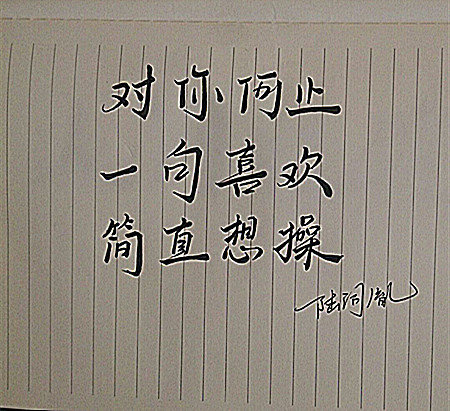 对你何止
一句喜欢
简直想操